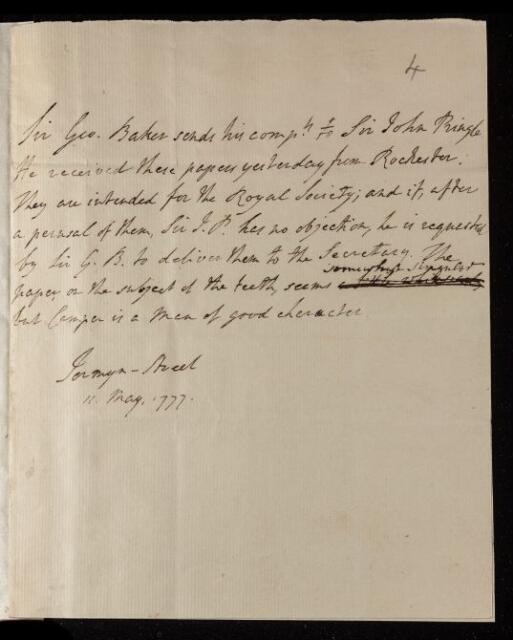 4
Sir Geo. Baker sends his comp.ts to Sir John Pringle
He received these papers yesterday from Rochester.
They are intended for the Royal Society; and if, after
a perusal of them, Sir J. P. has no objection, he is requested
by Sir G. B. to deliver them to the Secretary. The
somewhat singular
paper on the subject of the teeth, seems
but Camper is a Man of good character.
Jermyn-Street
11. May, 1777.